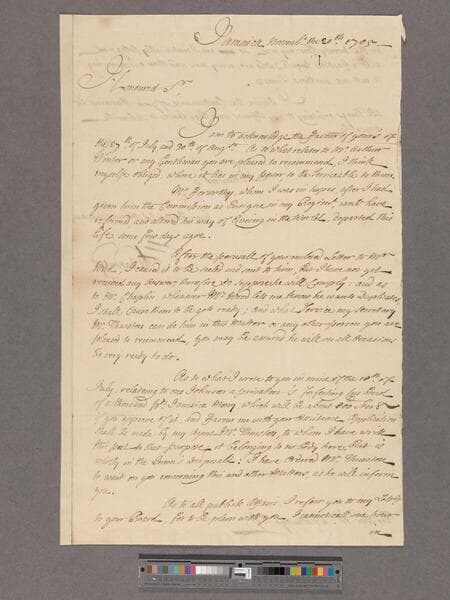 Jamaica Novemb.r the 20th 1705
Honoured Sr.
I am to acknowledge the Favour of yours of
the 27th of July and 30th of Augst. As to what relates to Mr. Arthur
or any Gentleman you are pleased to recommend, I think
myself obliged, where it lies in my power to be Serviceable to them.
Mr. whom I was in hopes, after I had
given him the Commission as Ensigne in my Regimt. would have
reformed and altered his way of Liveing in the World, departed this
life some few days agoe.
After the perusall of your inclosed Letter to Mr.
I caused it to be sealed and sent to him, but I have not yet
received any Answer, therefore I suppose he will Comply; and as
to Mr. Chaplin, whenever Mr. lets me know he wants Duplicates,
I shall cause them to be got ready; and what Service my Secretary
Mr. can do him in this Matter or any other person you are
pleased to recommend, you may be assured he will on all Occasions
be very ready to do.
As to what I wrote to you in mine of the 10th. of
July, relating to one Johnson a privateer, & forfeiting his Bond
of Jamaica Mony, which will be about
if you approve of it, and Favour me with your Assistance, Application
shall be made by my Agent Mr. to whom I have wrote
this past to that purpose, it belonging to no body here, but is
wholly in the Crown's disposall: I have ordered Mr.
to wait on you concerning this and other Matters, as he will inform
you.
As to all publick Affairs I refer you to my Letter
to your Board, for to be plain with you, I cannot call one hour